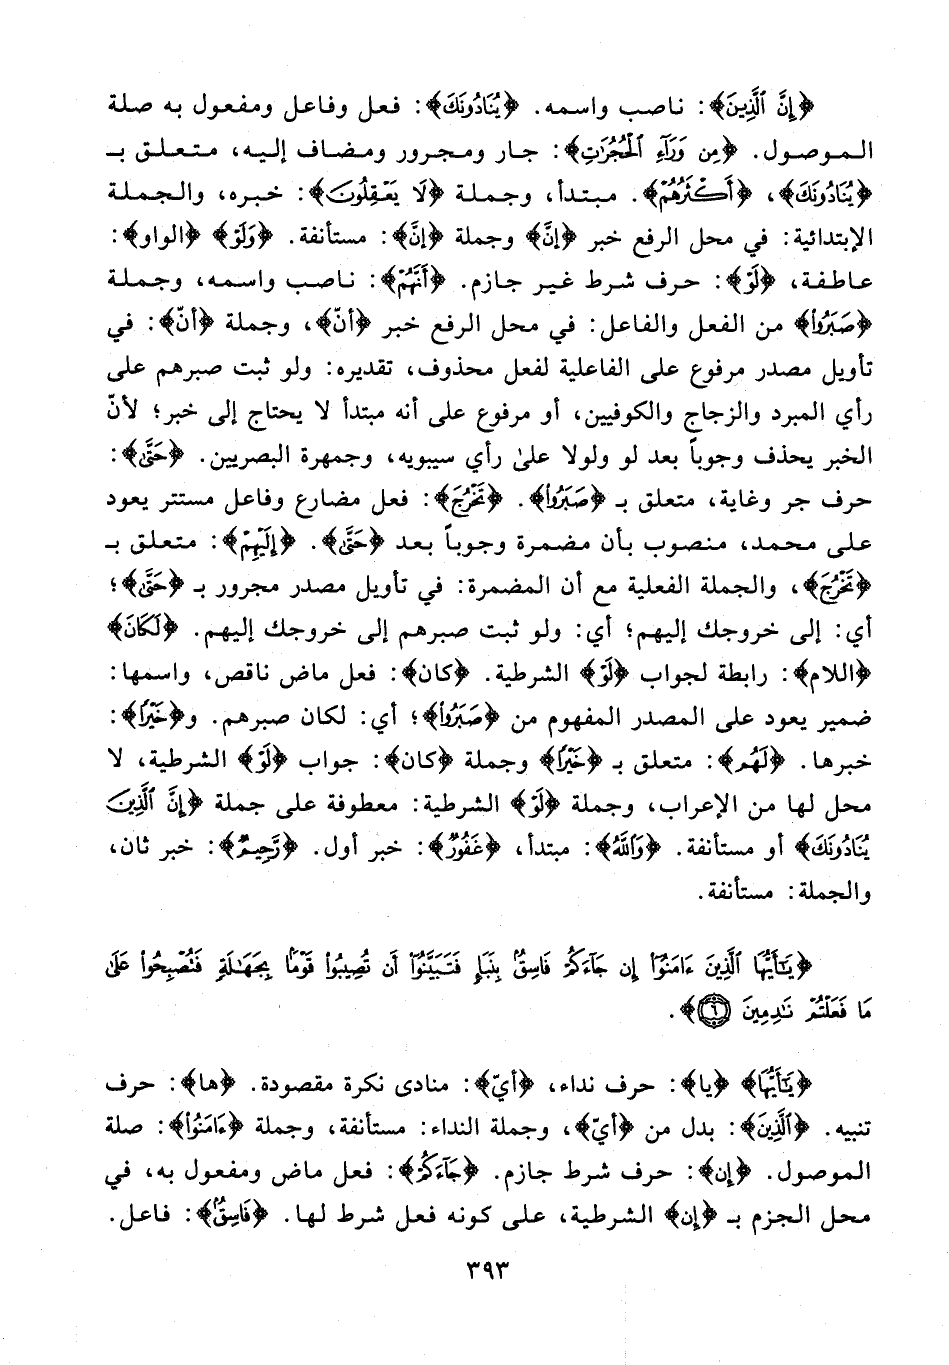 ﴿إِنَّ ٱلَّذِينَ﴾: ناصب واسمه. ﴿يُنَادُونَكَ﴾: فعل وفاعل ومفعول به صلة
الموصول. ﴿مِن وَرَآءِ ٱلْحُجُرَٰتِ﴾: جار ومجرور ومضاف إليه، متعلق بـ
﴿يُنَادُونَكَ﴾، ﴿أَكْثَرُهُمْ﴾. مبتدأ، وجملة ﴿لَا يَعْقِلُونَ﴾: خبره، والجملة
الإبتدائية: في محل الرفع خبر ﴿إنَّ﴾ وجملة ﴿إنَّ﴾: مستأنفة. ﴿وَلَوْ﴾ ﴿الواو﴾:
عاطفة، ﴿لَوْ﴾: حرف شرط غير جازم. ﴿أَنَّهُمْ﴾: ناصب واسمه، وجملة
﴿صَبَرُوا۟﴾ من الفعل والفاعل: في محل الرفع خبر ﴿أنّ﴾، وجملة ﴿أنّ﴾: في
تأويل مصدر مرفوع على الفاعلية لفعل محذوف، تقديره: ولو ثبت صبرهم على
رأي المبرد والزجاج والكوفيين، أو مرفوع على أنه مبتدأ لا يحتاج إلى خبر؛ لأنّ
الخبر يحذف وجوباً بعد لو ولولا علىٰ رأي سيبويه، وجمهرة البصريين. ﴿حَتَّىٰ﴾:
حرف جر وغاية، متعلق بـ ﴿صَبَرُوا۟﴾. ﴿تَخْرُجَ﴾: فعل مضارع وفاعل مستتر يعود
على محمد، منصوب بأن مضمرة وجوباً بعد ﴿حَتَّىٰ﴾. ﴿إِلَيْهِمْ﴾: متعلق بـ
﴿تَخْرُجَ﴾، والجملة الفعلية مع أن المضمرة: في تأويل مصدر مجرور بـ ﴿حَتَّىٰ﴾؛
أي: إلى خروجك إليهم؛ أي: ولو ثبت صبرهم إلى خروجك إليهم. ﴿لَكَانَ﴾
﴿اللام﴾: رابطة لجواب ﴿لَوْ﴾ الشرطية. ﴿كان﴾: فعل ماض ناقص، واسمها:
ضمير يعود على المصدر المفهوم من ﴿صَبَرُوا۟﴾؛ أي: لكان صبرهم. و﴿خَيْرًا﴾:
خبرها. ﴿لَهُم﴾: متعلق بـ ﴿خَيْرًا﴾ وجملة ﴿كان﴾: جواب ﴿لَوْ﴾ الشرطية، لا
محل لها من الإعراب، وجملة ﴿لَوْ﴾ الشرطية: معطوفة على جملة ﴿إِنَّ ٱلَّذِينَ
يُنَادُونَكَ﴾ أو مستأنفة. ﴿وَٱللَّهُ﴾: مبتدأ، ﴿غَفُورٌ﴾: خبر أول. ﴿رَّحِيمٌ﴾: خبر ثان،
والجملة: مستأنفة.
﴿يَٰٓأَيُّهَا ٱلَّذِينَ ءَامَنُوٓا۟ إِن جَآءَكُمْ فَاسِقٌۢ بِنَبَإٍ فَتَبَيَّنُوٓا۟ أَن تُصِيبُوا۟ قَوْمًۢا بِجَهَٰلَةٍ فَتُصْبِحُوا۟ عَلَىٰ
مَا فَعَلْتُمْ نَٰدِمِينَ ٦﴾.
﴿يَٰٓأَيُّهَا﴾ ﴿يا﴾: حرف نداء، ﴿أيّ﴾: منادى نكرة مقصودة. ﴿ها﴾: حرف
تنبيه. ﴿ٱلَّذِينَ﴾: بدل من ﴿أيّ﴾، وجملة النداء: مستأنفة، وجملة ﴿ءَامَنُوٓا۟﴾: صلة
الموصول. ﴿إن﴾: حرف شرط جازم. ﴿جَآءَكُمْ﴾: فعل ماض ومفعول به، في
محل الجزم بـ ﴿إن﴾ الشرطية، على كونه فعل شرط لها. ﴿فَاسِقٌۢ﴾: فاعل.
٣٩٣